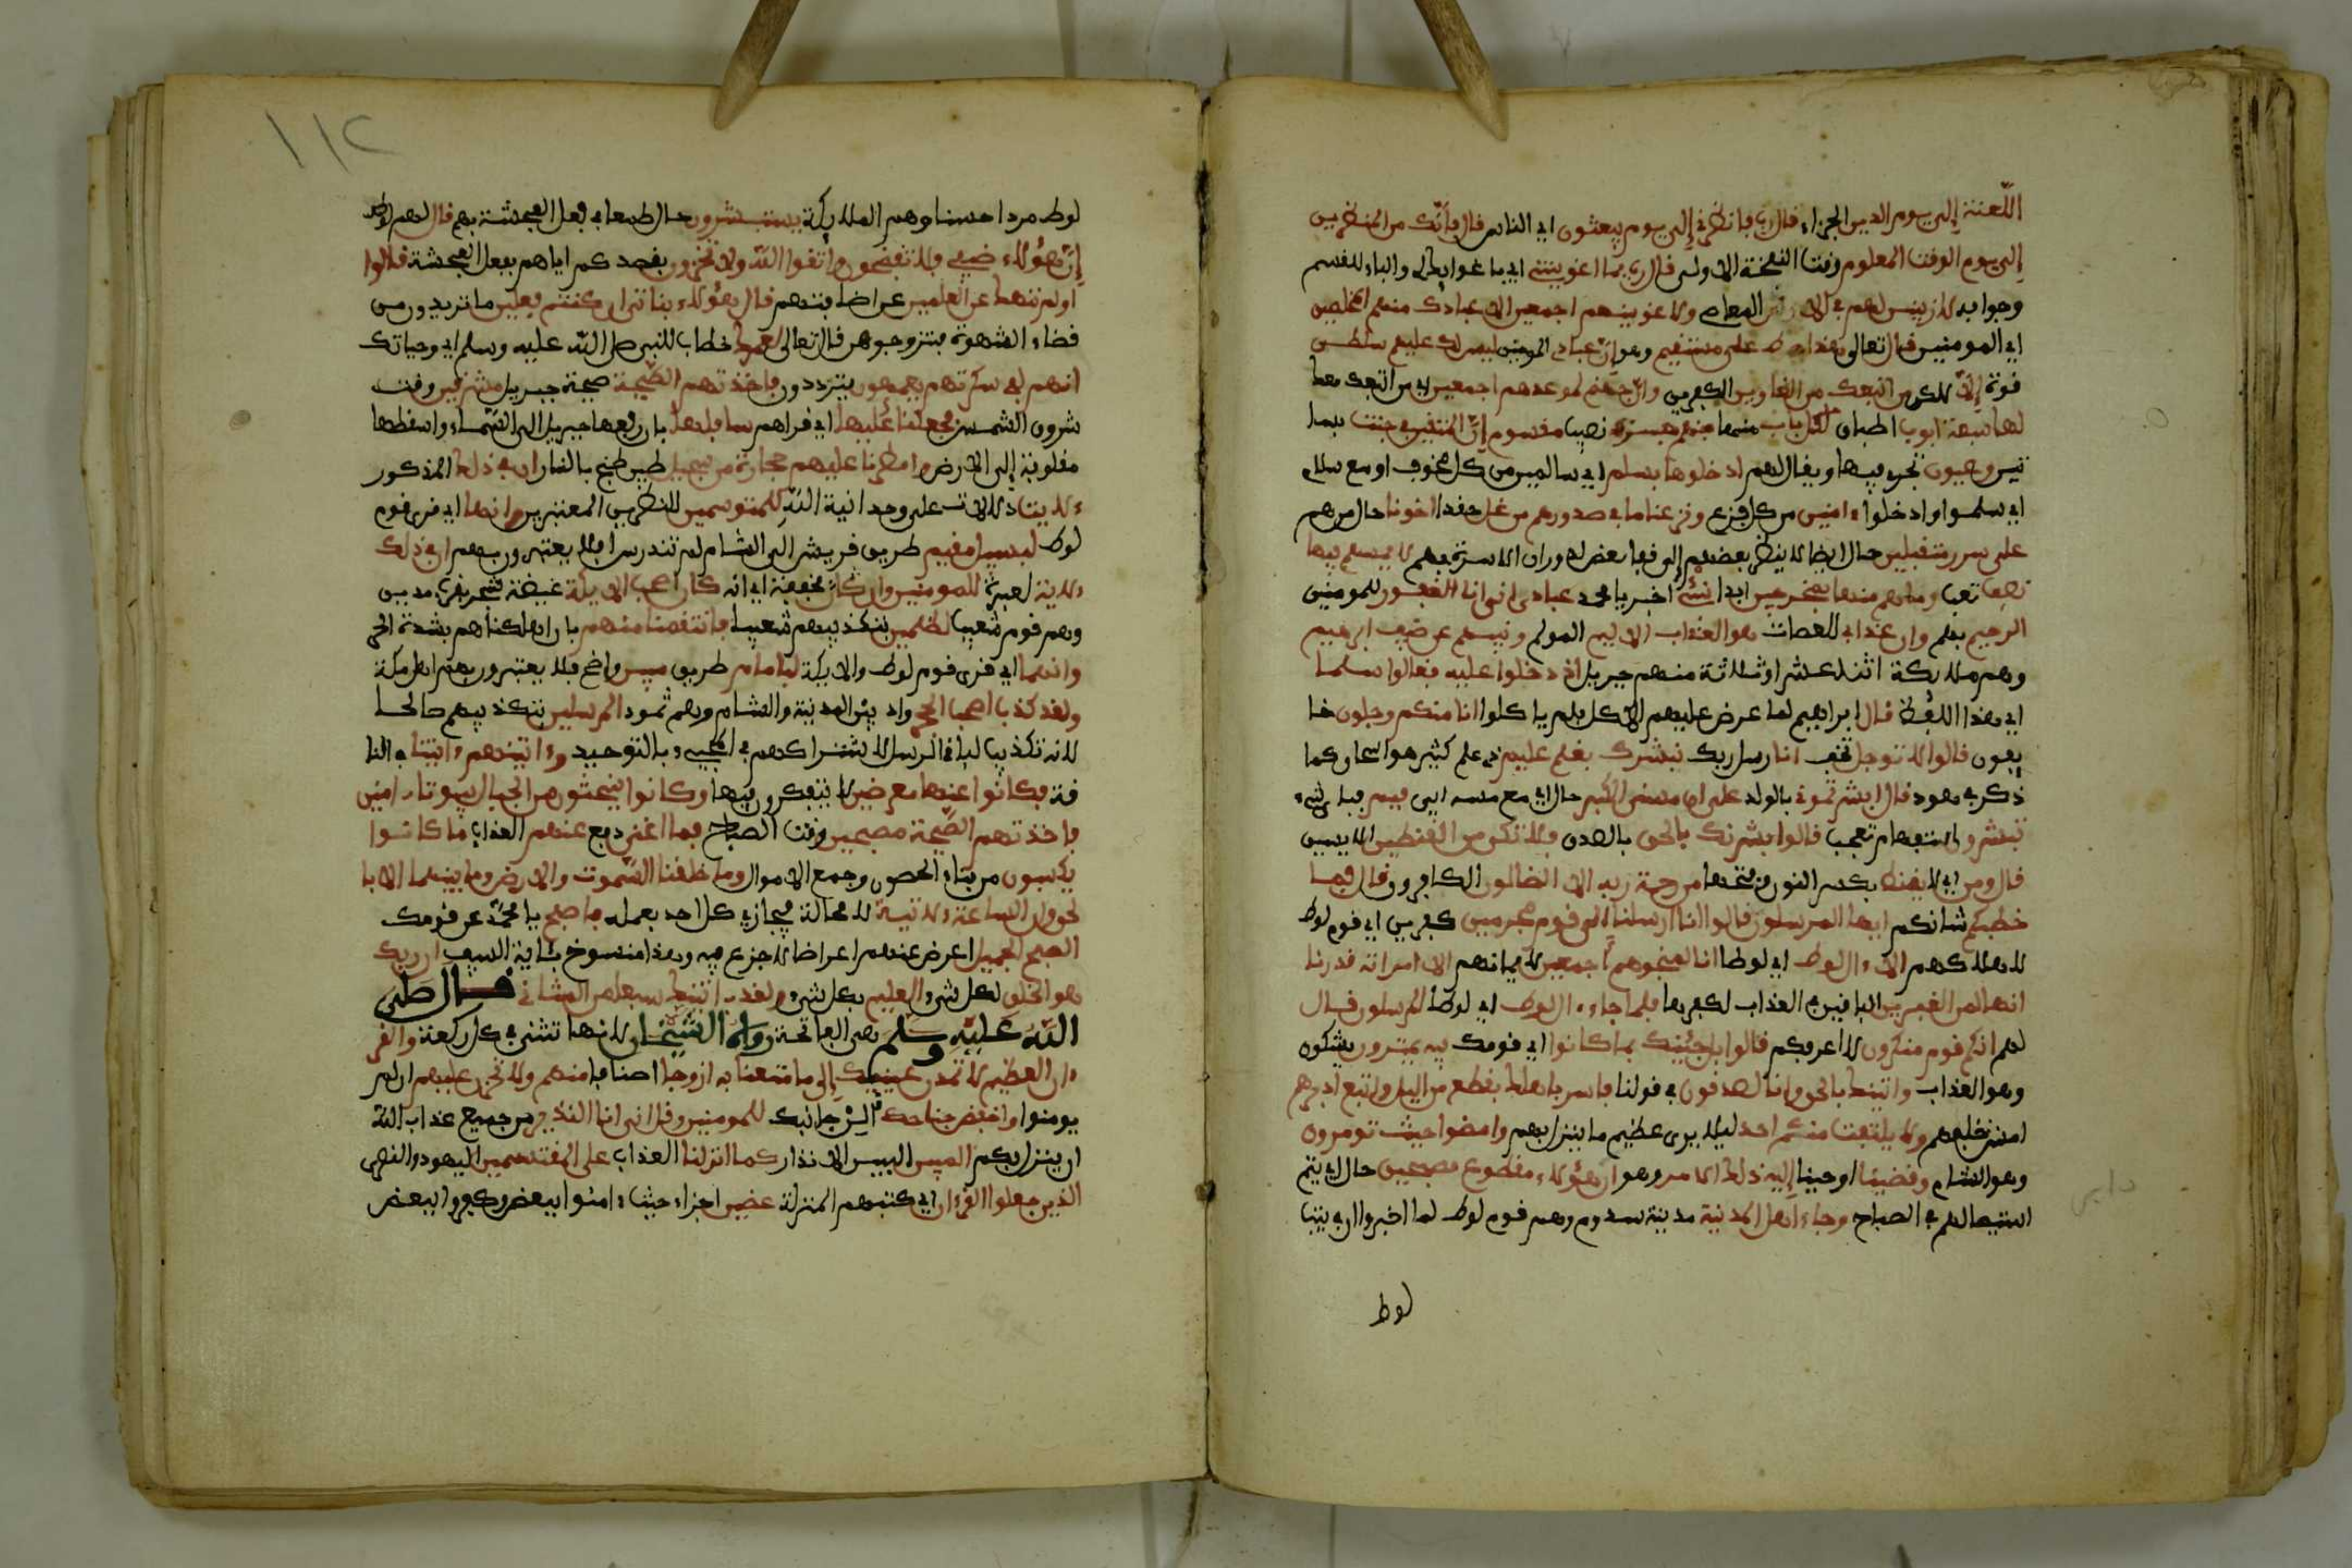 اللعنة إلى يوم الدين الجزاء قال رب فانظرني إلى يوم يبعثون اي الناس قال فإنك من المنظرين
إلى يوم الوقت المعلوم وقت النفخة الاولى قال رب بما اغويتني اي باغوايك لي والباء للقسم
وجوابه لازينن لهم في الارض المعاصي ولاغوينهم اجمعين الا عبادك منهم المخلصين
اي المومنين قال تعالى هذا صراط علي مستقيم وهو ان عبادي المومنين ليس لك عليهم سلطن
قوة إلا لكن من اتبعك من الغاوين الكفرين وان جهنم لموعدهم اجمعين اي من اتبعك معك
لها سبعة ابوب اطباق لكل باب منها منهم جزء نصيب مقسوم إن المتقين في جنت بسا
تين وعيون تجري فيها ويقال لهم ادخلوها بسلم اي سالمين من كل مخوف او مع سلام
اي سلموا وادخلوا ءامنين من كل فزع ونزعنا ما في صدورهم من غل حقد اخونا حال من هم
على سرر متقبلين حال ايضا لا ينظر بعضهم إلى قفا بعض لدوران الاسرة بهم لا يمسهم فيها
نصب تعب وما هم منها بمخرجين ابدا نبئ اخبر يا محمد عبادي اني انا الغفور للمومنين
الرحيم بهم وان عذابي للعصات هو العذاب الاليم المولم ونبيهم عن ضيف ابرهيم
وهم ملايكة اثنا عشر او ثلاثة منهم جبريل اذ دخلوا عليه فقالوا سلما
اي هذا اللفظ قال ابراهيم لما عرض عليهم الاكل فلم ياكلوا انا منكم وجلون خا
يفون قالوا لا توجل تخف انا رسل ربك نبشرك بغلم عليم ذي علم كثير هو اسحاق كما
ذكر في هود قال ابشرتموني بالولد على ان مسني الكبر حال اي مع مسه اياي فبم فباي شيء
تبشرون استفهام تعجب قالوا بشرنك بالحق بالصدق فلا تكن من القنطين الايسين
قال ومن اي لا يقنط بكسر النون وفتحها من رحمة ربه الا الضالون الكافرون قال فما
خطبكم شانكم ايها المرسلون قالوا انا ارسلنا الى قوم مجرمين كفرين اي قوم لوط
لاهلاكهم الا ءال لوط اي لوطا انا لمنجوهم اجمعين لايمانهم الا امراته قدرنا
انها لمن الغبرين الباقين في العذاب لكفرها فلما جاء ءال لوط اي لوطا المرسلون قال
لهم انكم قوم منكرون لا اعرفكم قالوا بل جئنك بما كانوا اي قومك فيه يمترون يشكون
وهو العذاب واتينك بالحق وانا لصدقون في قولنا فاسر باهلك بقطع من اليل واتبع ادبرهم
امش خلفهم ولا يلتفت منكم احد ليلا يرى عظيم ما ينزل بهم وامضوا حيث تومرون
وهو الشام وقضينا اوحينا إليه ذلك الامر وهو ان دابر هؤلاء مقطوع مصبحين حال اي يتم
استيصالهم في الصباح وجاء اهل المدينة مدينة سدوم وهم قوم لوط لما اخبروا ان في بيت
لوط
١١٢
لوط مردا حسنا وهم الملايكة يستبشرون حال طمعا في فعل الفحشة بهم قال لهم لوط
إن هؤلاء ضيفي فلا تفضحون واتقوا الله ولا تخزون بقصدكم اياهم بفعل الفحشة قالوا
اولم ننهك عن العلمين عن اضافتهم قال هؤلاء بناتي ان كنتم فعلين ما تريدون من
قضاء الشهوة فتزوجوهن قال تعالى لعمرك خطاب للنبي صلى الله عليه وسلم اي وحياتك
انهم لفي سكرتهم يعمهون يترددون فاخذتهم الصيحة صيحة جبريل مشرقين وقت
شروق الشمس فجعلنا عليها اي قراهم سافلها بان رفعها جبريل الى السماء واسقطها
مقلوبة إلى الارض وامطرنا عليهم حجارة من سجيل طين طبخ بالنار ان في ذلك المذكور
ءلايت دلالات على وحدانية الله للمتوسمين للنظرين المعتبرين وانها اي قرى قوم
لوط لبسبيل مقيم طريق قريش الى الشام لم تندرس افلا يعتبرون بهم ان في ذلك
ءلاية لعبرة للمومنين وان مخففة اي انه كان اصحب الايكة غيضة شجر بقرب مدين
وهم قوم شعيب لظلمين بتكذيبهم شعيبا فانتقمنا منهم بان اهلكناهم بشدة الحر
وانهما اي قرى قوم لوط والايكة لبامام طريق مبين واضح افلا يعتبرون بهم اهل مكة
ولقد كذب اصحب الحجر واد بين المدينة والشام وهم ثمود المرسلين بتكذيبهم صالحا
لانه تكذيب لباقي الرسل لاشتراكهم في المجيء بالتوحيد وءاتينهم ءايتنا في النا
قة فكانوا عنها معرضين لا يتفكرون فيها وكانوا ينحتون من الجبال بيوتا ءامنين
فاخذتهم الصيحة مصبحين وقت الصباح فما اغنى دفع عنهم العذاب ما كانوا
يكسبون من بناء الحصون وجمع الاموال وما خلقنا السموت والارض وما بينهما الا با
لحق وان الساعة ءلاتية لا محالة فيجازي كل احد بعمله فاصفح يا محمد عن قومك
الصفح الجميل اعرض عنهم اعراضا لا جزع فيه وهذا منسوخ بئاية السيف ان ربك
هو الخلق لكل شيء العليم بكل شيء ولقد ءاتينك سبعا من المثاني قال صلى
الله عليه وسلم هي الفاتحة رواه الشيخان لانها تثنى في كل ركعة والقر
ءان العظيم لا تمدن عينيك إلى ما متعنا به ازوجا اصنافا منهم ولا تحزن عليهم ان لم
يومنوا واخفض جناحك الن جانبك للمومنين وقل اني انا النذير من جميع عذاب الله
ان ينزل بكم المبين البين الانذار كما انزلنا العذاب على المقتسمين اليهود والنصرى
الذين جعلوا القرءان اي كتبهم المنزلة عضين اجزاء حيث ءامنوا ببعض وكفروا ببعض